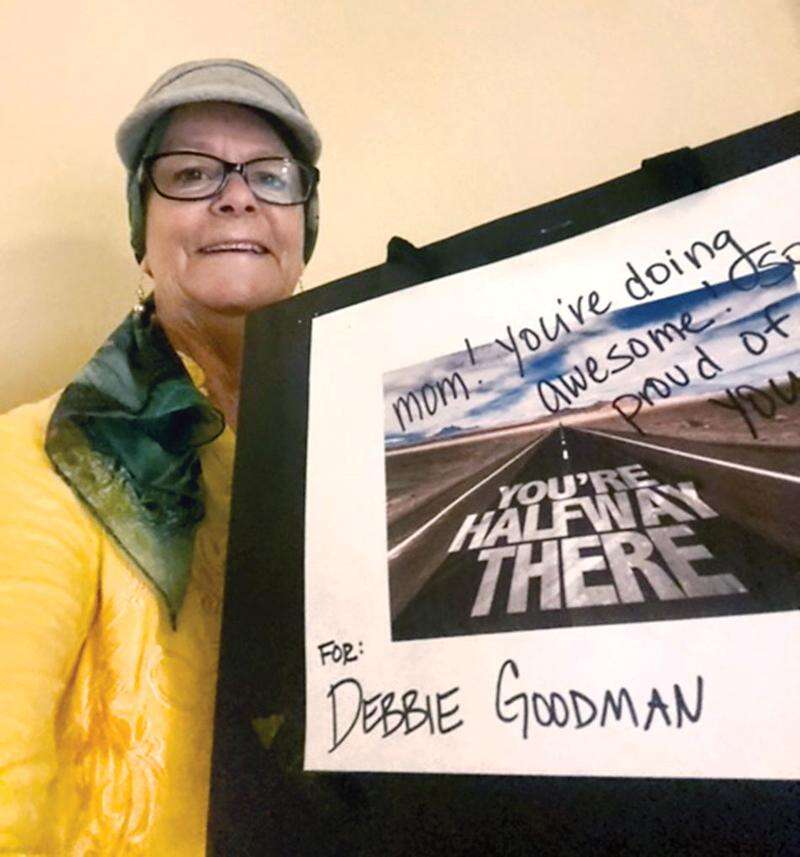 mom! You're doing
awesome! So
proud of
you
YOU'RE
HALFWAY
THERE
FOR:
DEBBIE GOODMAN